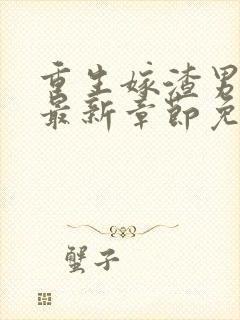 重生嫁渣男
最新章节免
蟹子